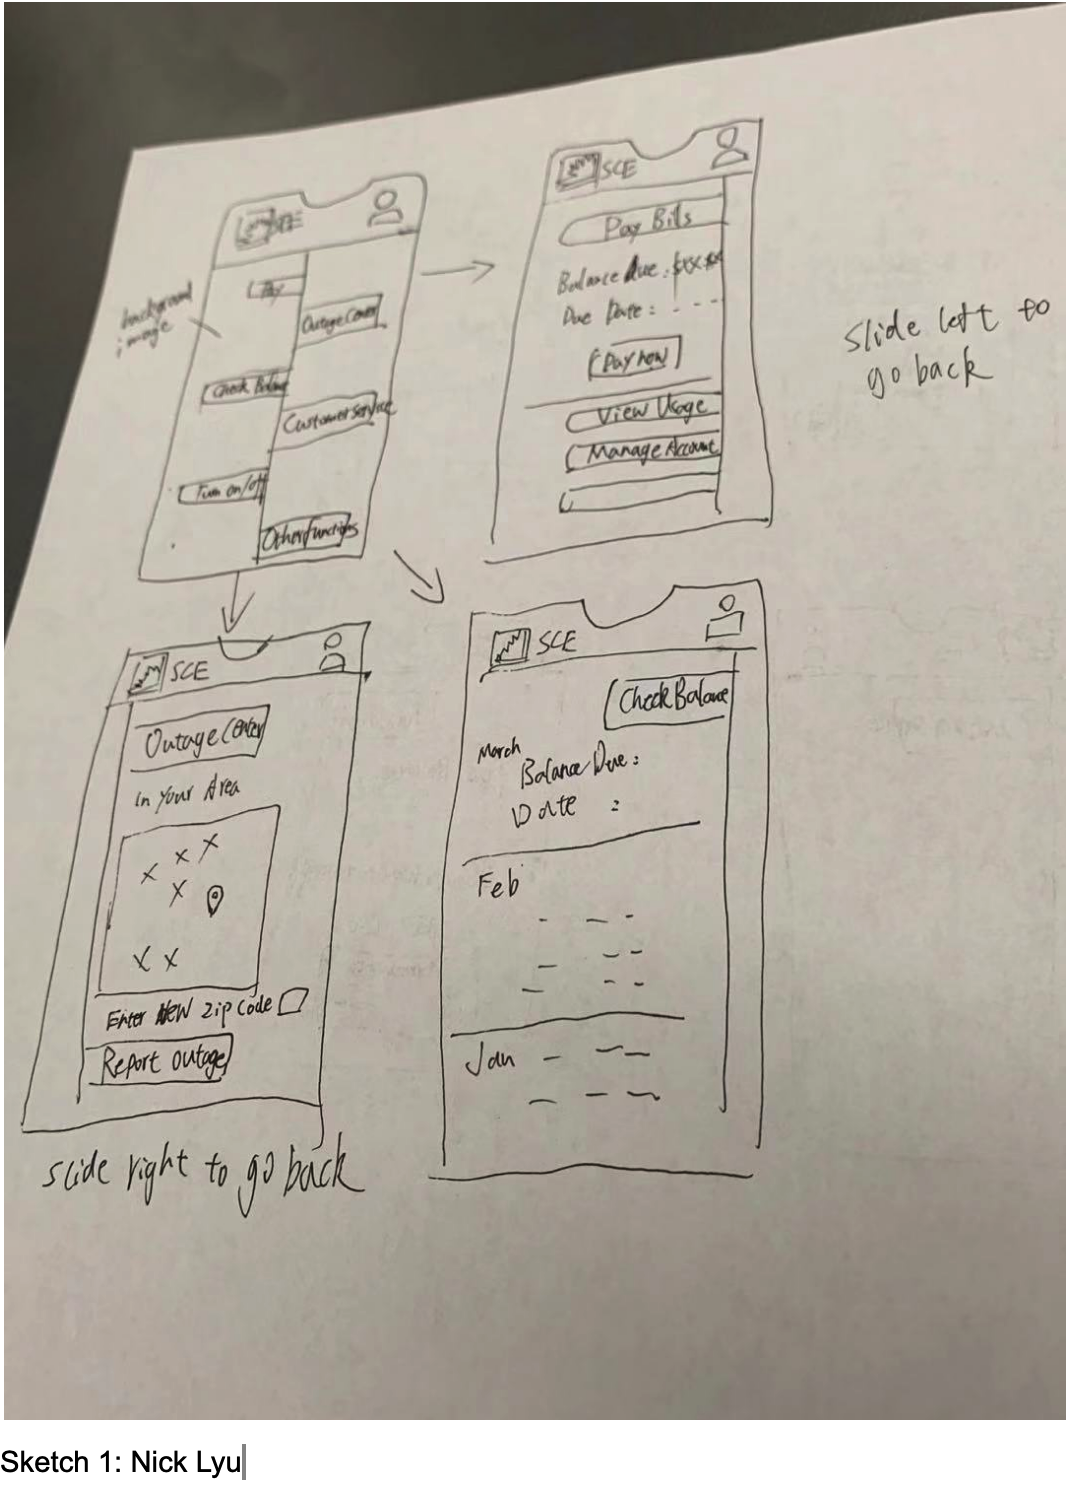 background
image
Pay
Outage Center
Check Balance
Customer Service
Turn on/off
Other functions
SCE
Pay Bills
Balance due: $xx.xx
Due Date: - - -
Pay now
View Usage
Manage Account
slide left to
go back
SCE
Outage Center
In Your Area
x x x
x
x x
Enter NEW Zip Code
Report outage
slide right to go back
SCE
Check Balance
March
Balance Due:
Date :
Feb
Jan
Sketch 1: Nick Lyu